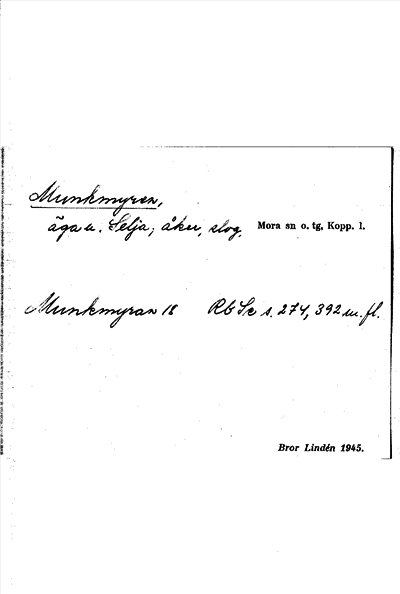 Munkmyren,
äga u. Selja; åker, slog. Mora sn o. tg, Kopp. l.
Munkmyran 18 Rb Se s. 274, 392 m. fl.
Bror Lindén 1945.